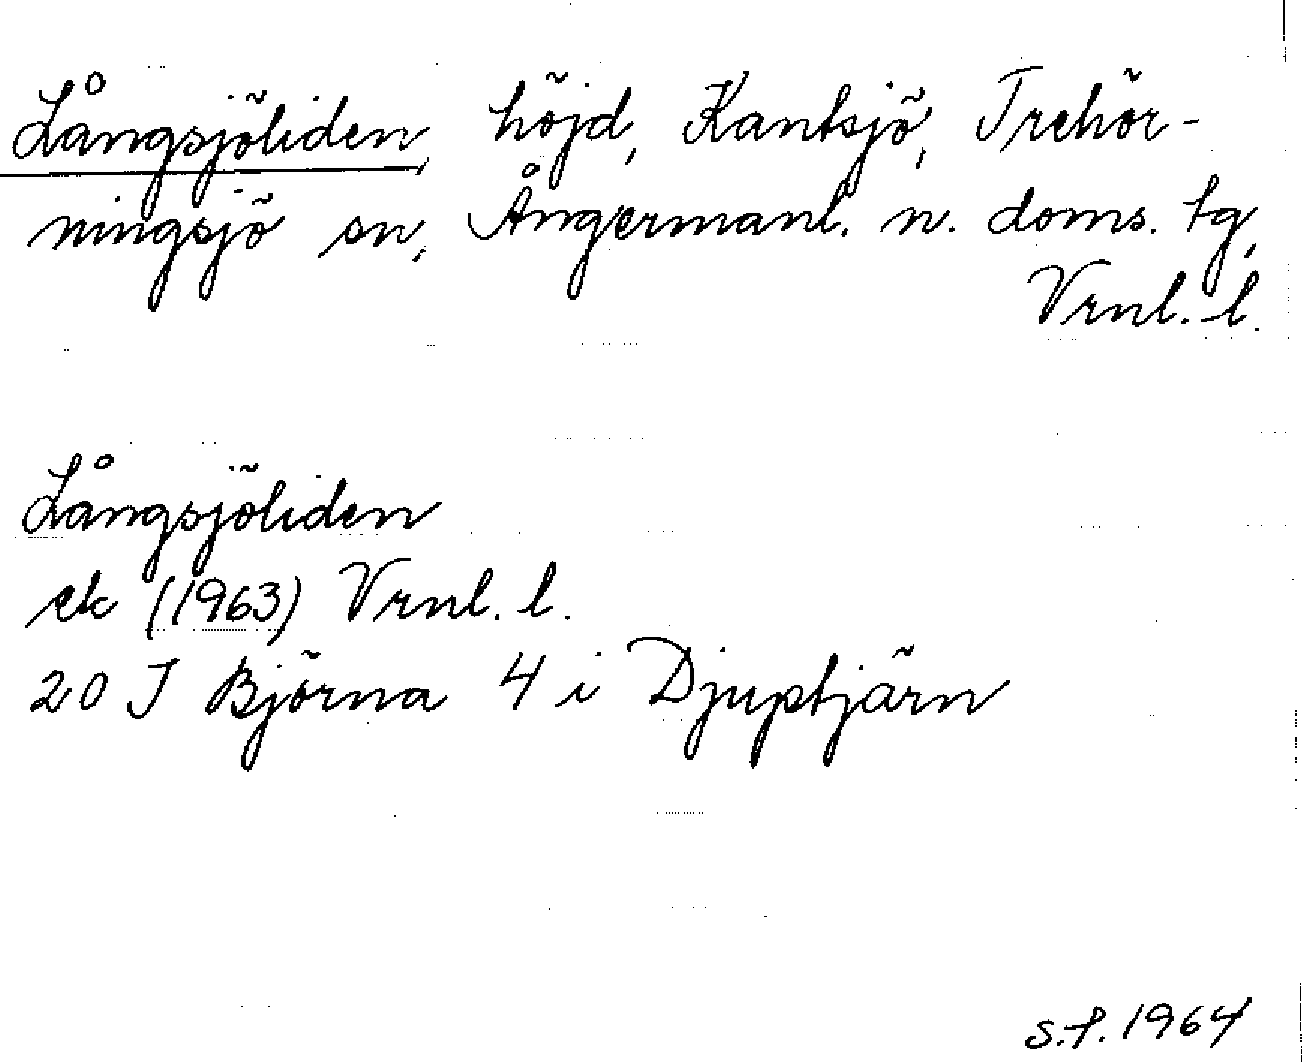 Långsjöliden, höjd, Kantsjö, Trehör-
ningsjö sn, Ångermanl. n. doms. tg,
Vrnl. l.
Långsjöliden
ek (1963) Vrnl. l.
20 J Björna 4 i Djuptjärn
S.f. 1964